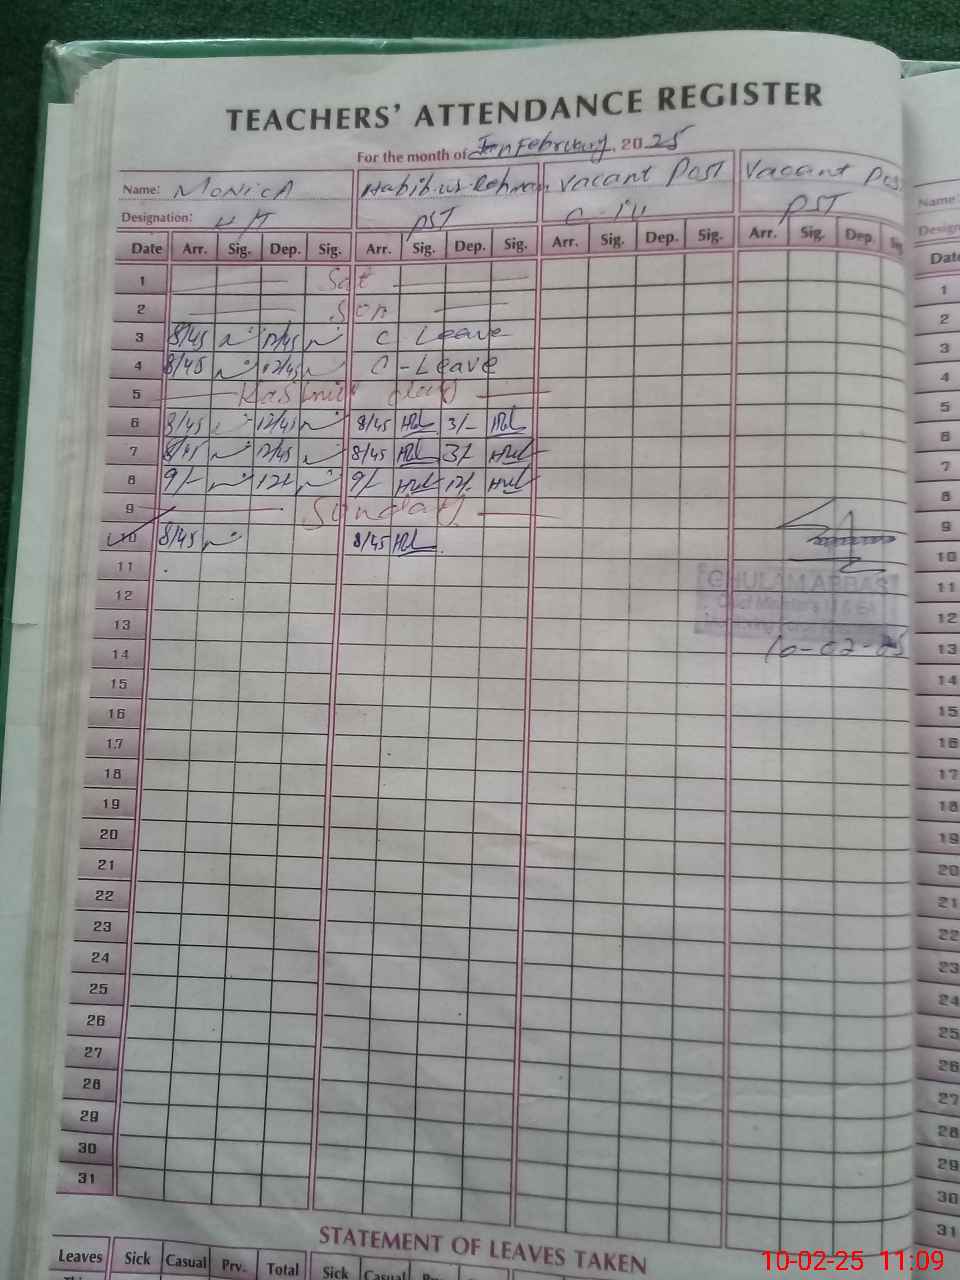 TEACHERS' ATTENDANCE REGISTER
For the month of February, 2025
Name: MONICA Habib-ur-Rehman Vacant Post Vacant Pos
Designation: HM PST PST
Name:
Design
Date Arr. Sig. Dep. Sig. Arr. Sig. Dep. Sig. Arr. Sig. Dep. Sig. Arr. Sig. Dep. Sig
Date
1 Sat
2 Sun
3 8/45 12/45 C Leave
4 8/45 12/45 C-Leave
5 Kashmir day
6 8/45 12/45 8/45 3/-
7 8/45 12/45 8/45 3/
8 9/- 12/- 9/- 12/-
9 Sunday
10 8/45 8/45
11
12
13
14
15
16
17
18
19
20
21
22
23
24
25
26
27
28
29
30
31
GHULAM ABBAS
Chief Minister's M & EA
10-02-25
1
2
3
4
5
6
7
8
9
10
11
12
13
14
15
16
17
18
19
20
21
22
23
24
25
26
27
28
29
30
31
STATEMENT OF LEAVES TAKEN
Leaves Sick Casual Prv. Total Sick Casual
10-02-25 11:09